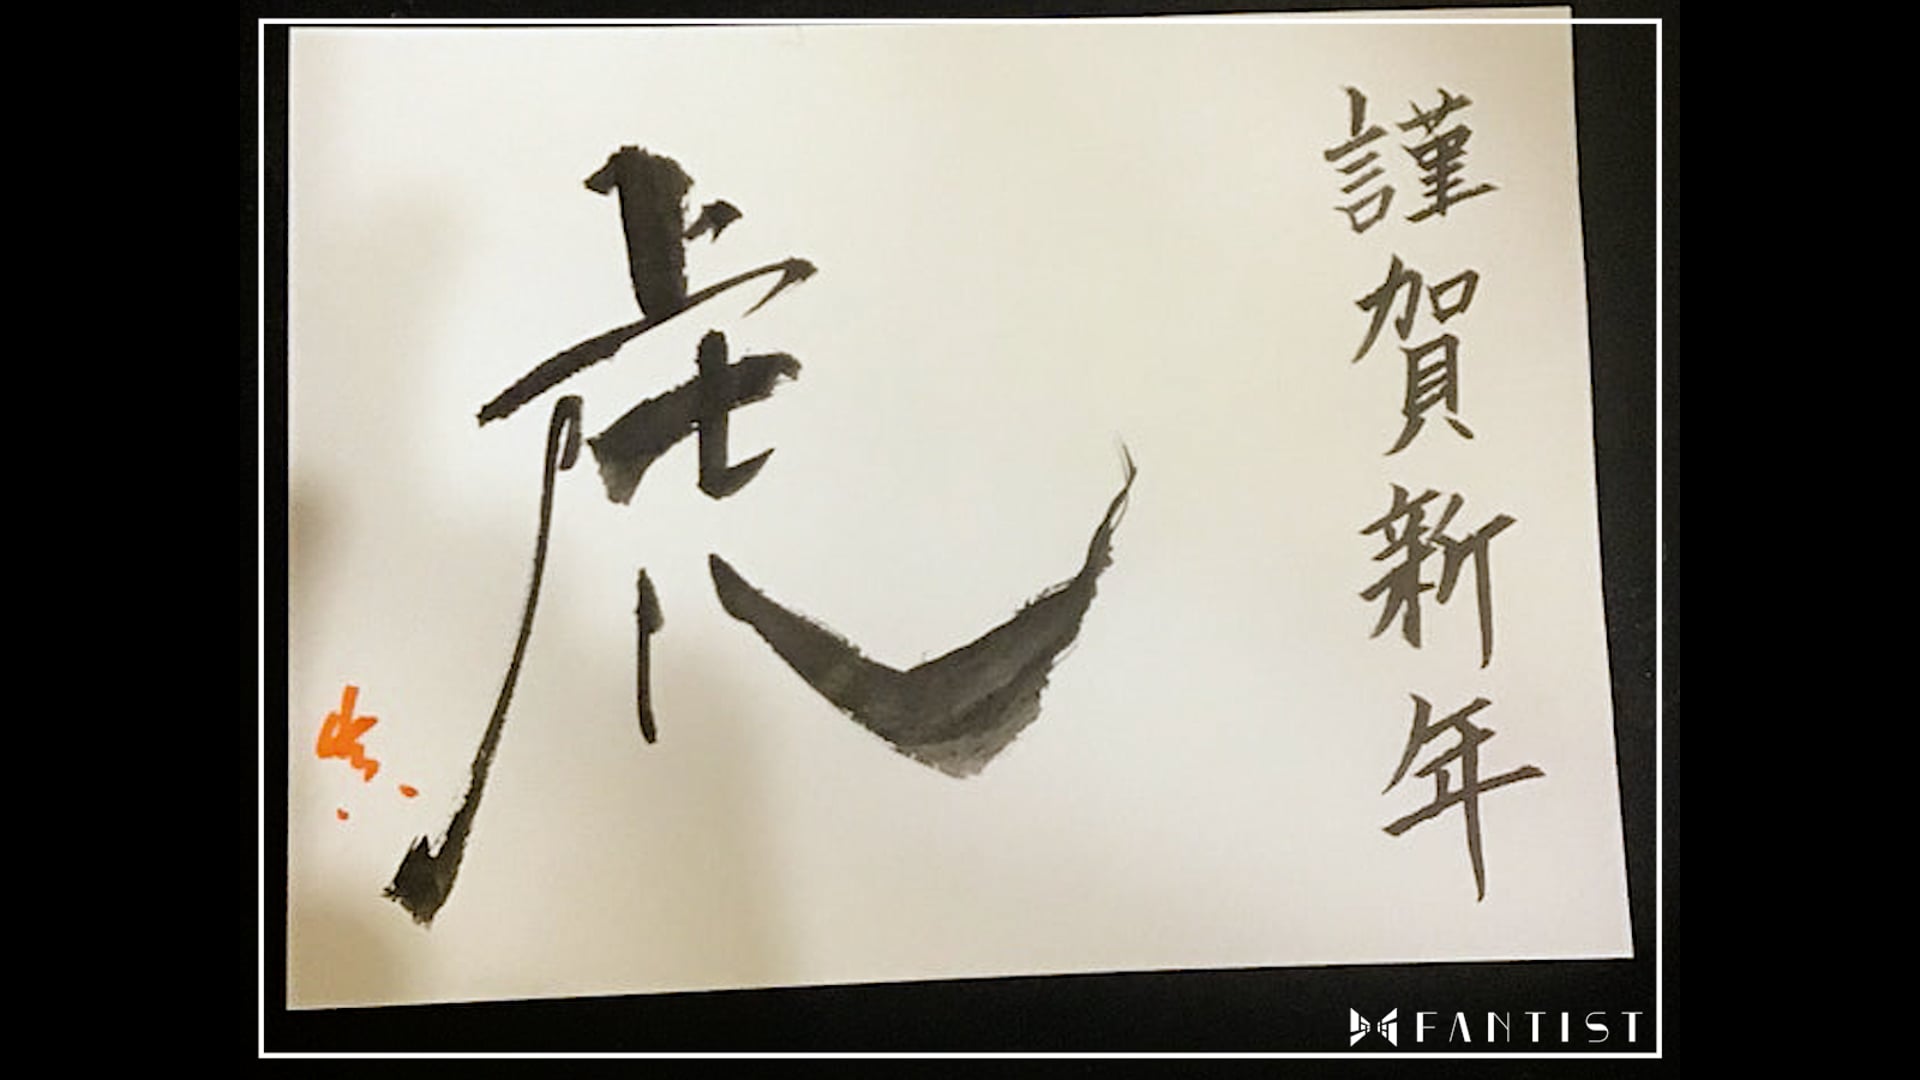 謹賀新年
虎
FANTIST